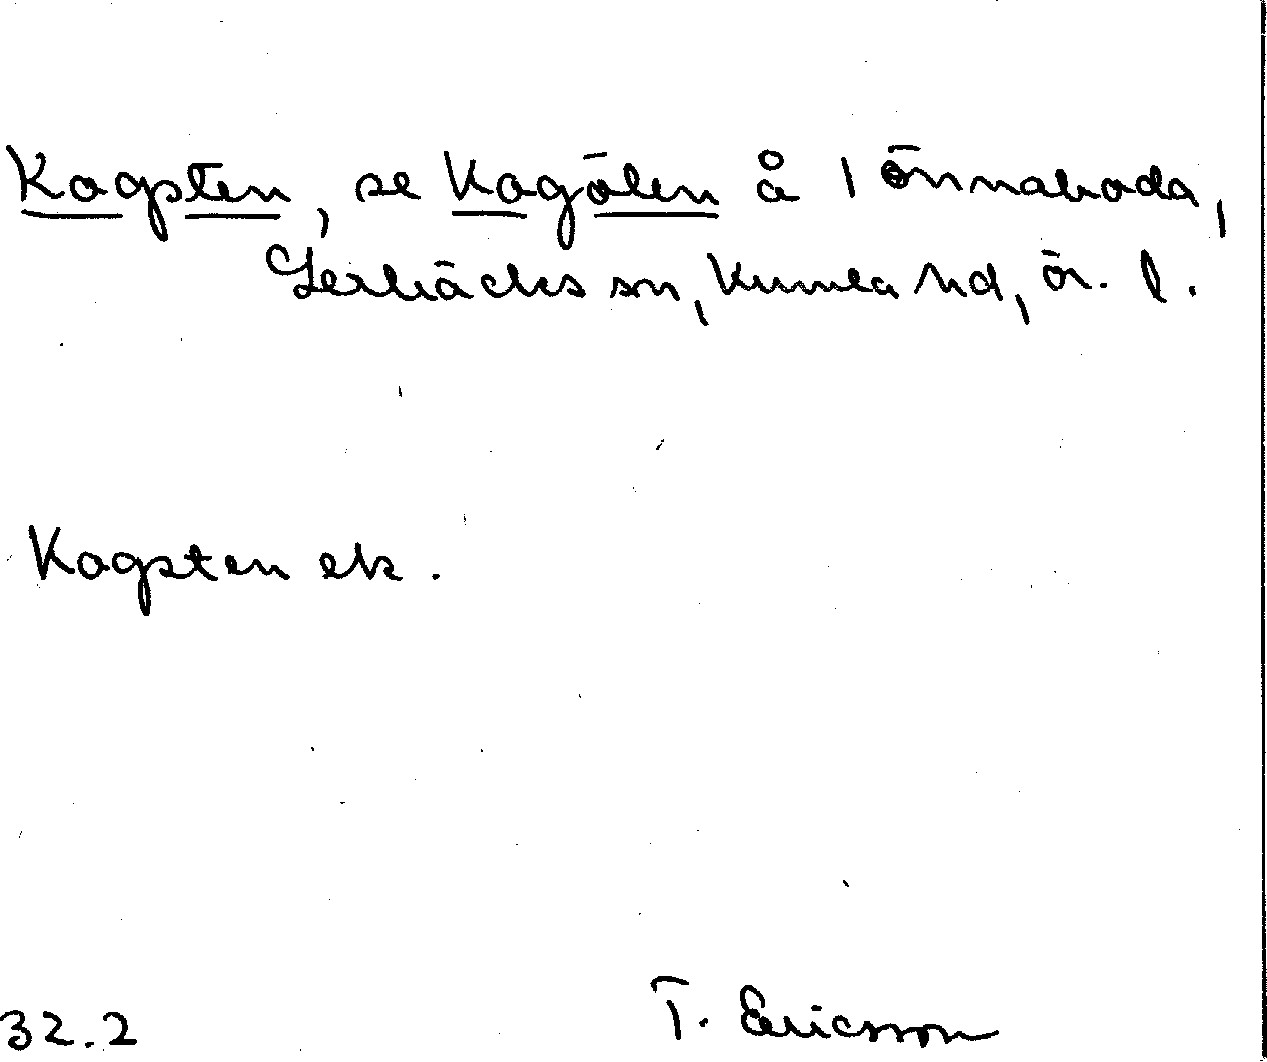 Kagsten, se Kagölen å Lönnaboda,
Lerbäcks sn, Kumla hd, ör. l.
Kagsten ek.
32.2
T. Ericsson